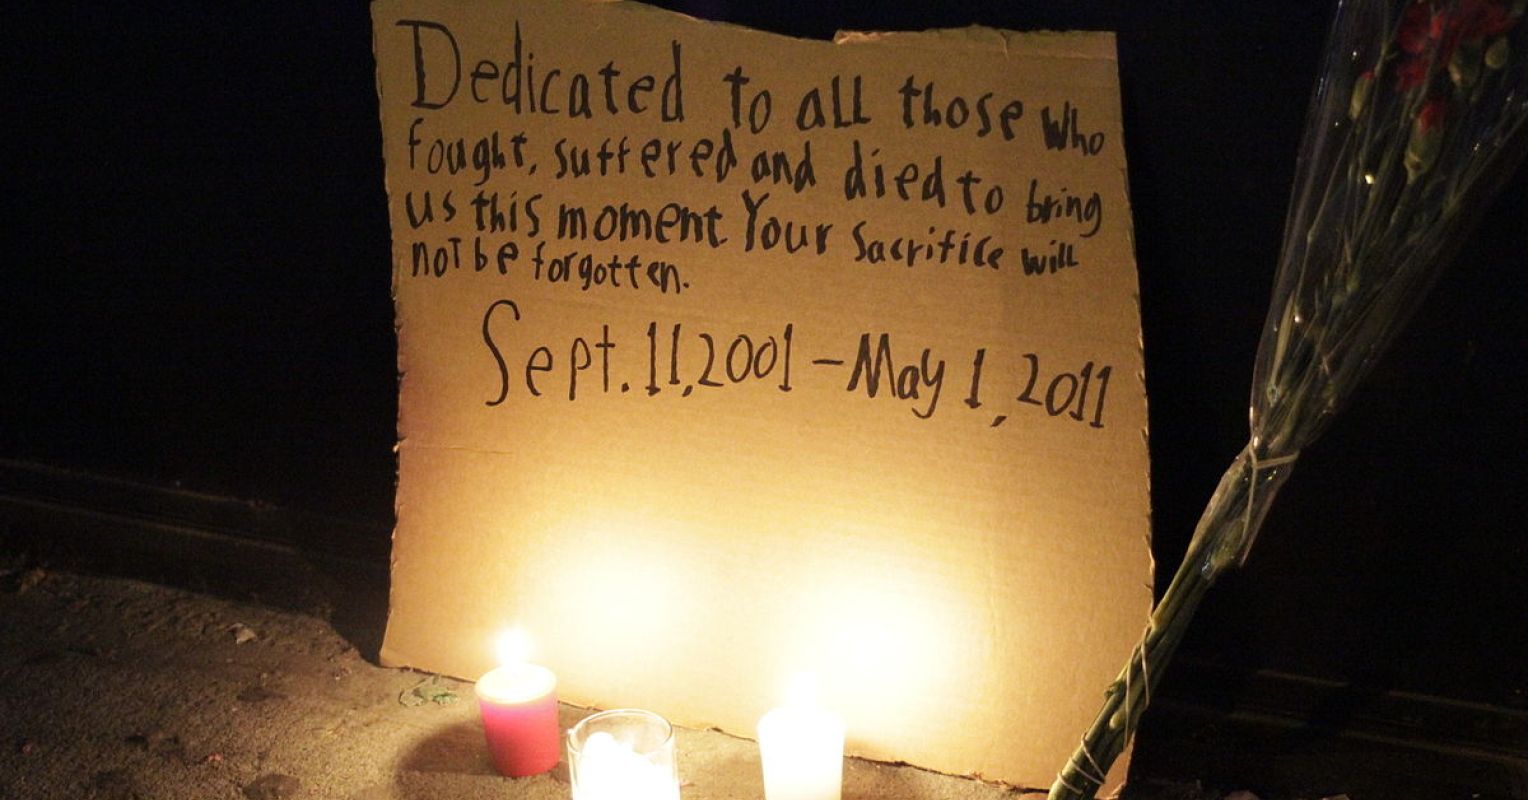 Dedicated to all those who
fought, suffered and died to bring
us this moment. Your sacrifice will
not be forgotten.
Sept. 11, 2001 - May 1, 2011